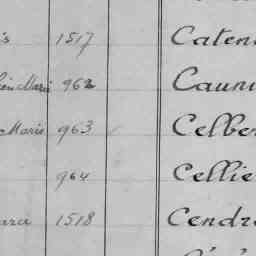 1517 Caten
Marie 962 Caun
Marie 963 Celbe
964 Cellie
1518 Cendr